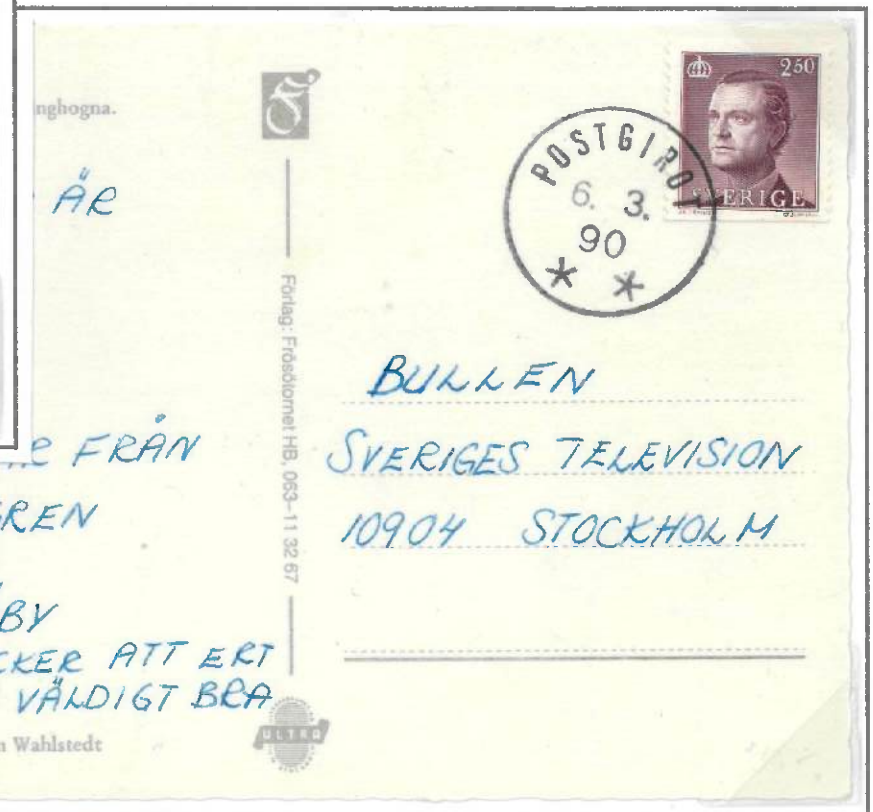 nghogna.
ÄR
FRÅN
GREN
BY
CKER ATT ERT
VÄLDIGT BRA
Wahlstedt
Förlag: Frösötornet HB, 063-11 32 67
ULTRA
250
SVERIGE
POSTGIROT
6. 3.
90
BULLEN
SVERIGES TELEVISION
10904 STOCKHOLM